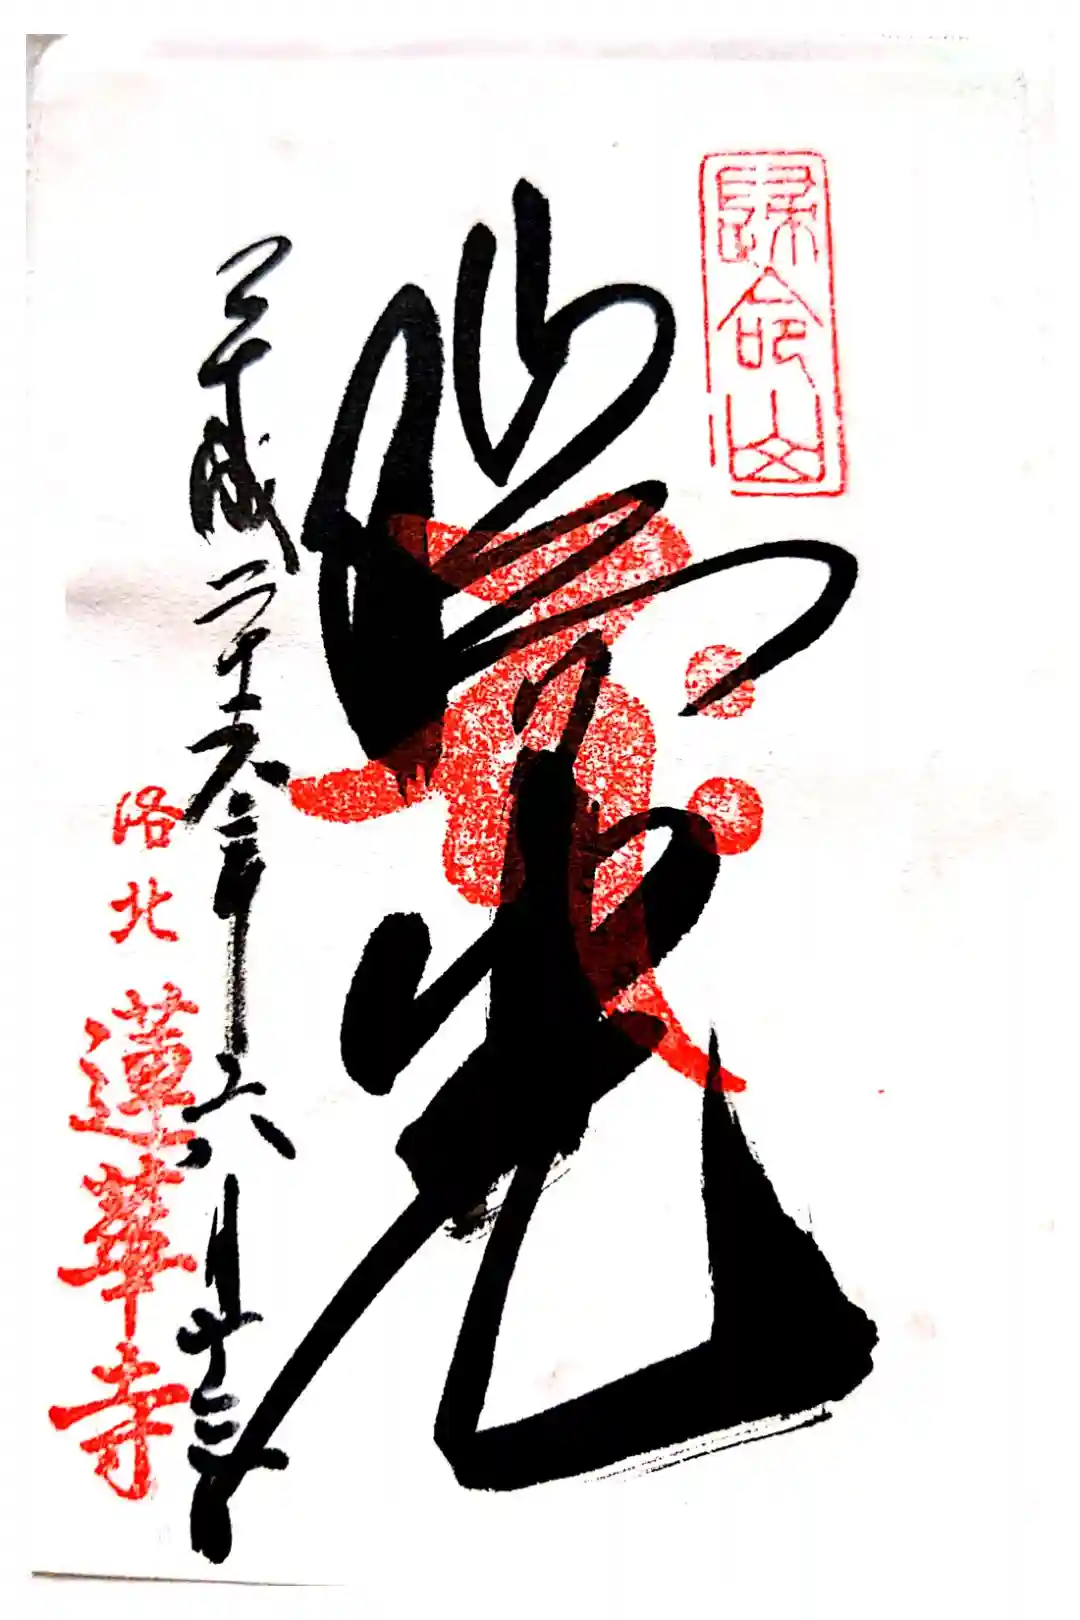 歸命山
瑞光
平成二十六年六月十三日
洛北 蓮華寺